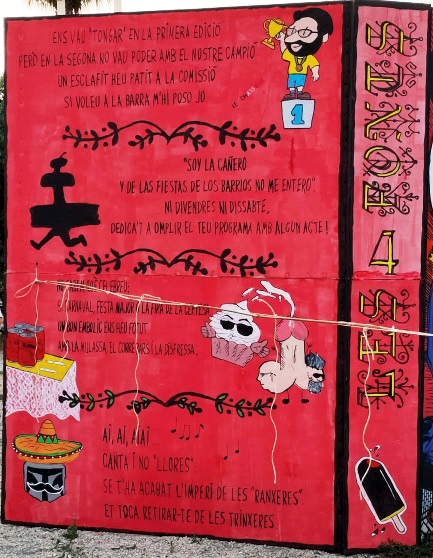 ENS VAU "TONGAR" EN LA PRIMERA EDICIÓ
PERÒ EN LA SEGONA NO VAU PODER AMB EL NOSTRE CAMPIÓ
UN ESCLAFIT HEU PATIT A LA COMISSIÓ
SI VOLEU A LA BARRA M'HI POSO JO.
1
"SOY LA CAÑERO
Y DE LAS FIESTAS DE LOS BARRIOS NO ME ENTERO"
NI DIVENDRES NI DISSABTE,
DEDICA'T A OMPLIR EL TEU PROGRAMA AMB ALGUN ACTE!
QUÈ CELEBREU:
CARNAVAL, FESTA MAJOR O LA FIRA DE LA
UN BON EMBOLIC ENS HEU FOTUT
AMB LA MULASSA, EL I LA DISFRESSA.
AI, AI, AIAI
CANTA I NO "LLORES"
SE T'HA ACABAT L'IMPERI DE LES "RANXERES"
ET TOCA RETIRAR-TE DE LES TRINXERES
4